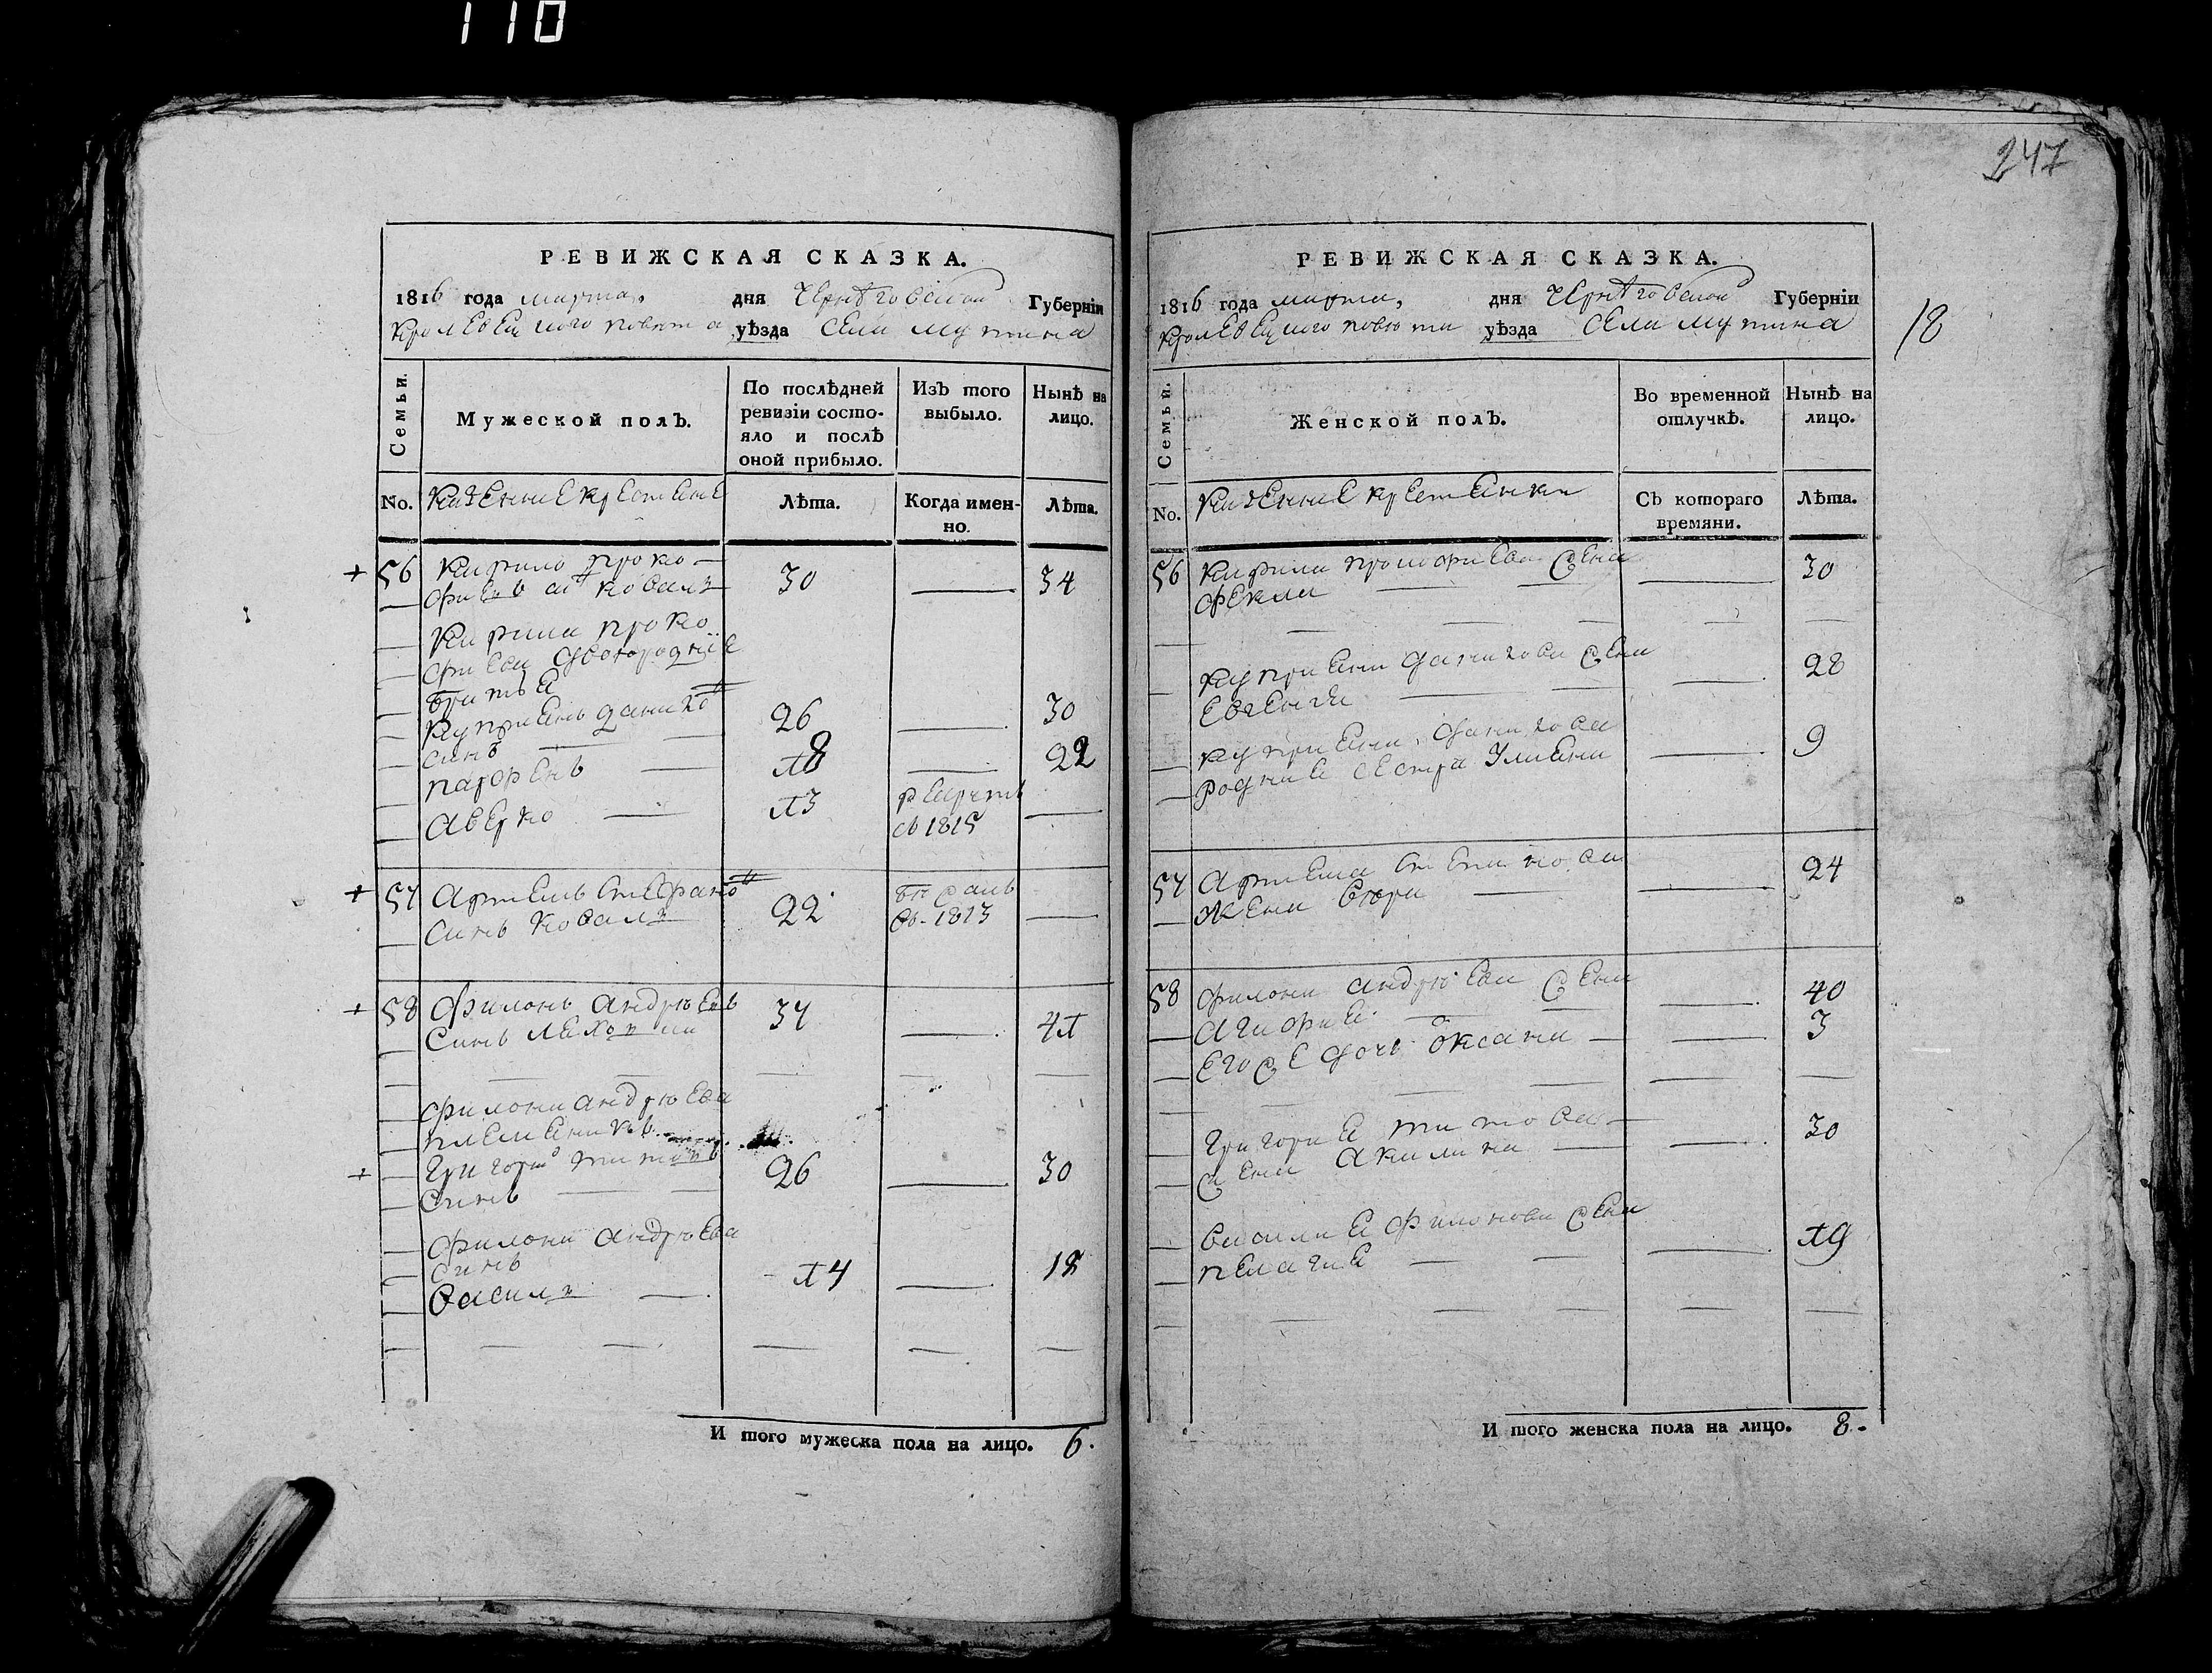 110
РЕВИЖСКАЯ СКАЗКА.
1816 года марта, дня Чернѣговской Губерніи
Кролевецкого повѣта уѣзда Села Мутина
Семьи.
Мужеской полъ.
По послѣдней ревизіи состо-
яло и послѣ
оной прибыло.
Изъ того
выбыло.
Нынѣ на
лицо.
No. Казенние крестяне
Лѣта.
Когда имен-
но.
Лѣта.
+ 56 Кирило Проко-
фиевъ Коваль 30 34
Кирила Проко
фиева двоюродние
братья
Куприянъ Данило 26 30
синъ
Парфенъ 18 22
Аверко 13
въ 1815
+ 57 Артемъ Стефанов
синъ Коваль 22
въ 1813
+ 58 Филонъ Андрюевъ
синъ 37 41
Филона Андрюева
племяникъ
+ Григорий Титовъ 26 30
синъ
Филона Андрюева
синъ
Василь 14 18
И того мужеска пола на лицо. 6.
247
18
РЕВИЖСКАЯ СКАЗКА.
1816 года марта, дня Чернѣговской Губерніи
Кролевецкого повѣта уѣзда Села Мутина
Семьи.
Женской полъ.
Во временной
отлучкѣ.
Нынѣ на
лицо.
No. Казенние крестянки
Съ котораго
времяни.
Лѣта.
56 Кирила Прокофиева жена 30
Фекла
Куприяна Данилова жена 28
Евгения
Куприяна Данилова 9
родная сестра Улияна
57 Артема 24
жена
58 Филона Андрюева жена 40
Агафия 3
Его же дочь Оксана
Григория Титова 30
жена Акилина
Василия Филонова жена 19
Пелагия
И того женска пола на лицо. 8.